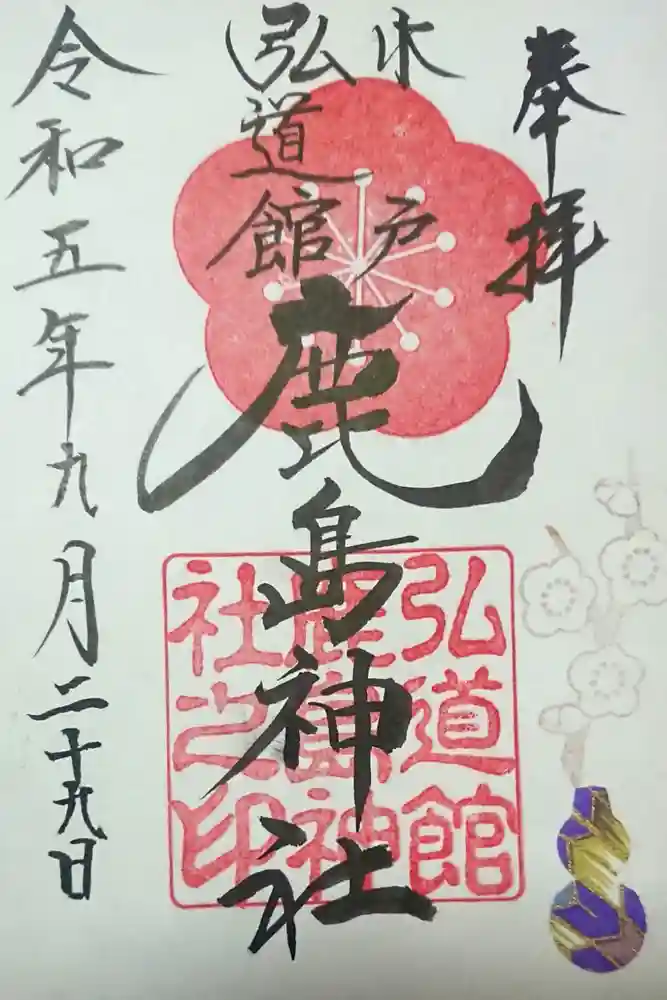 奉拝
水戸
弘道館
鹿島神社
令和五年九月二十九日
弘道館
鹿島神
社之印